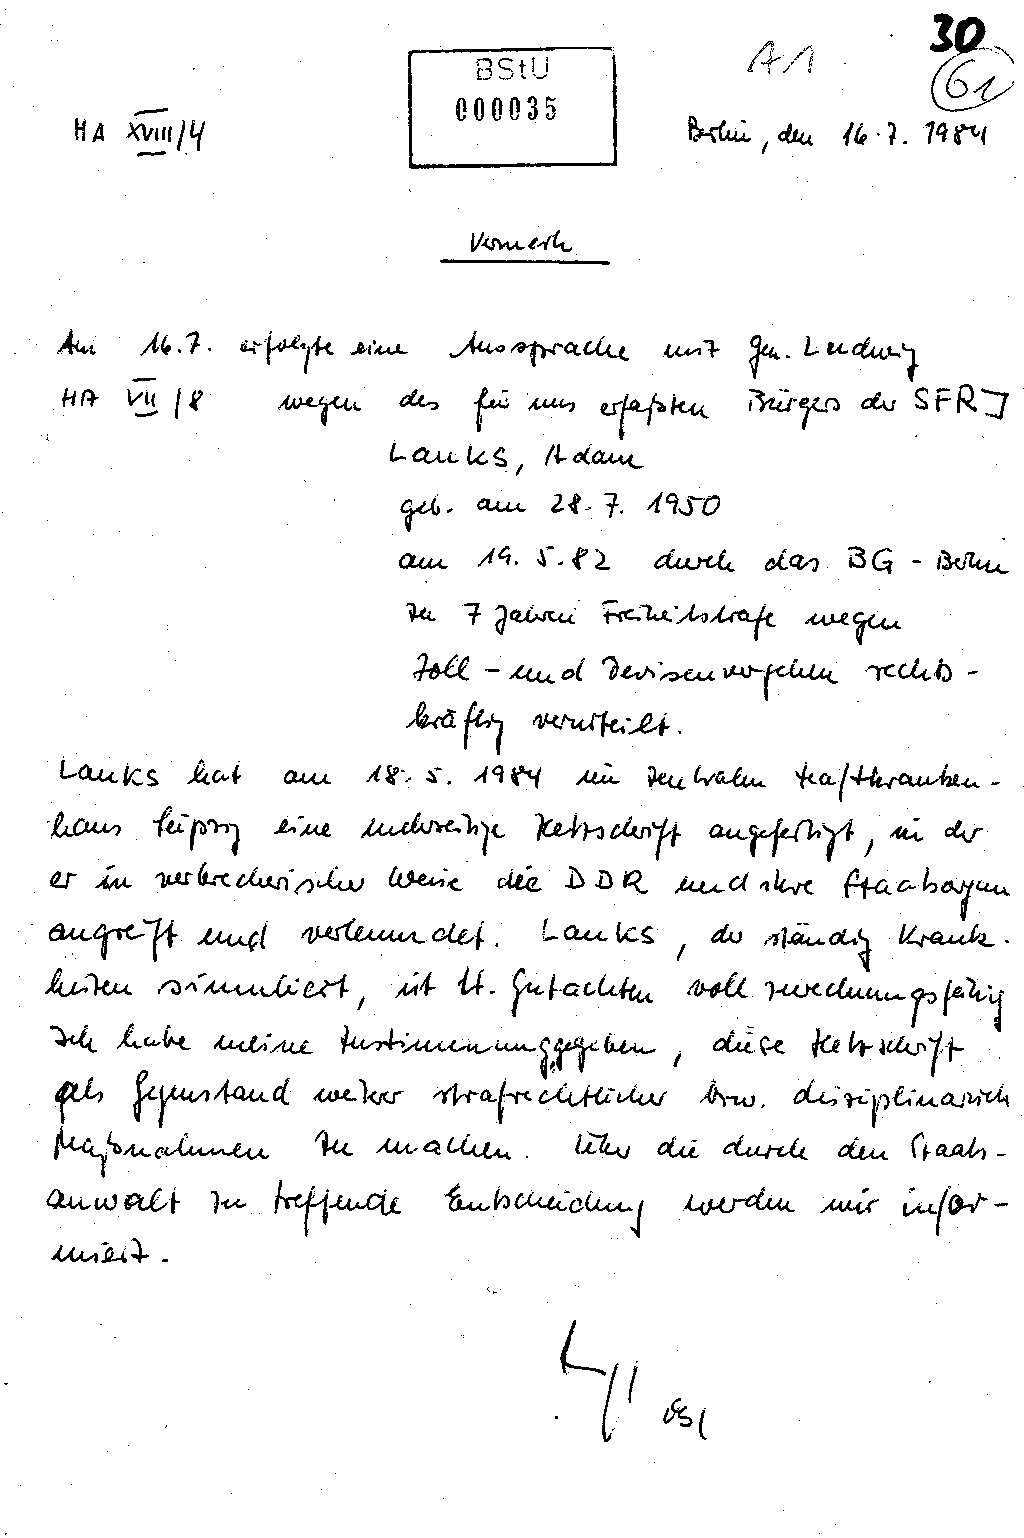 30
A1
61
BStU
000035
HA XVIII/4
Berlin, den 16.7.1984
Vermerk
Am 16.7. erfolgte eine Aussprache mit Gen. Ludwig
HA VII/8 wegen des für uns erfaßten Bürgers der SFRJ
Lauks, Adam
geb. am 28.7.1950
am 19.5.82 durch das BG-Berlin
zu 7 Jahren Freiheitstrafe wegen
Zoll- und Devisenvergehen rechts-
kräftig verurteilt.
Lauks hat am 18.5.1984 im zentralen Haftkranken-
haus Leipzig eine mehrseitige Hetzschrift angefertigt, in der
er in verbrecherischer Weise die DDR und ihre Staatsorgane
angreift und verleumdet. Lauks, der ständig Krank-
heiten simuliert, ist lt. Gutachten voll zurechnungsfähig
Ich habe meine Zustimmung gegeben, diese Hetzschrift
als Gegenstand weiterer strafrechtlicher bzw. disziplinarisch
Maßnahmen zu machen. Über die durch den Staats-
anwalt zu treffende Entscheidung werden wir infor-
miert.